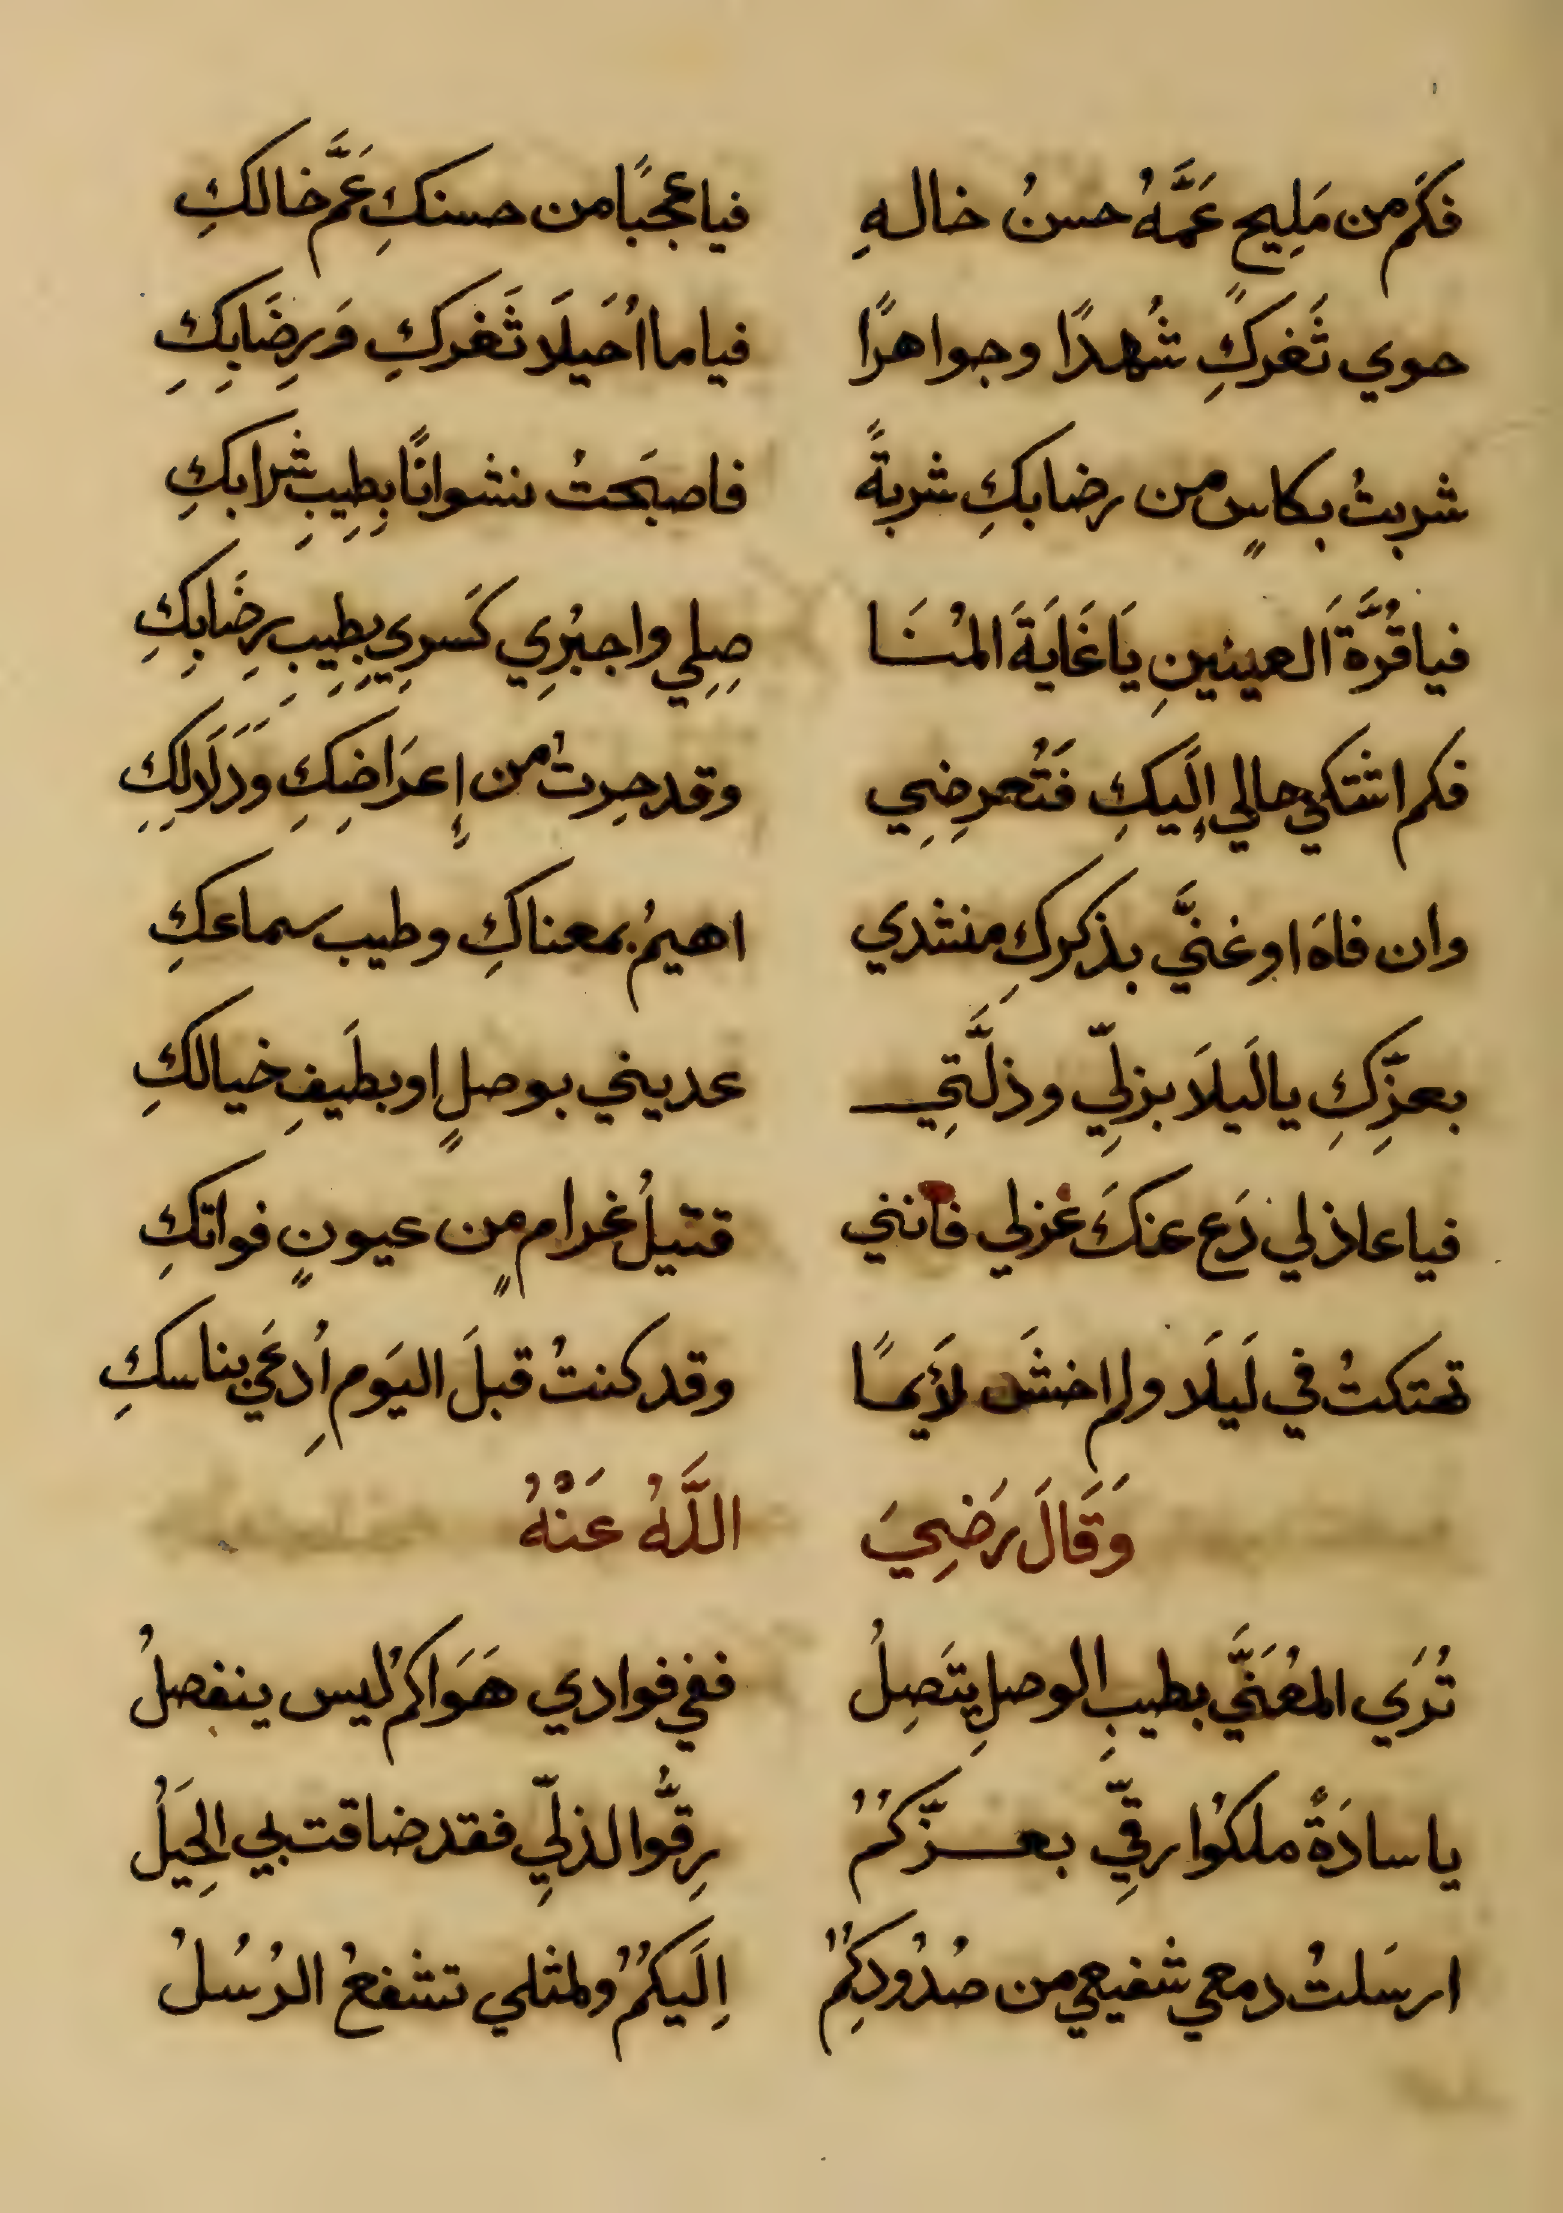 فكَم من مَلِيحٍ عَمَّهُ حسنُ خالهِ فياعجبًا من حسنكِ عَمَّ خالكِ
حوي ثَغركِ شُهدًا وجواهرًا فياما أُحَيلَا ثَغركِ وَرِضَابِكِ
شربتُ بكاسٍ من رضابكِ شربةً فاصبَحتُ نشوانًا بِطِيبِ شرابكِ
فياقُرَّةَ العينينِ يَاغَايَةَ المُنَا صِلِي واجبُرِي كَسرِي بِطِيبِ رِضَابِكِ
فكم اشتكي حالي إِلَيكِ فَتُعرِضِي وقد حِرتُ من إِعرَاضِكِ وَدَلَالِكِ
وان فاهَ او غنَّي بذكركِ منشدي اهيمُ بمعناكِ وطيب سماعكِ
بعزِّكِ يالَيلَا بزلِّي وذلَّتِي عديني بوصلٍ او بطَيفِ خيالكِ
فياعاذلي دَع عنكَ عزلي فانني قتيلُ غرامٍ من عيونٍ فواتكِ
تهتكتُ في لَيلَا ولم اخشَ لَأيمًا وقد كنتُ قبلَ اليَومِ أُدعَي بناسكِ
وَقَالَ رَضِيَ اللَّهُ عَنْهُ
تُرَي المُعَنَّي بطيبِ الوصلِ يتَصِلُ ففي فوادي هَوَاكمُ ليس ينفصلُ
ياسادَةً ملكُوا رقِّي بعزِّكُمُ رِقُّوا لذلِّي فقد ضاقت بي الحِيَلُ
ارسَلتُ دمعي شفيعي من صُدُودِكُمُ اِلَيكُمُ ولمثلي تشفعُ الرُسُلُ